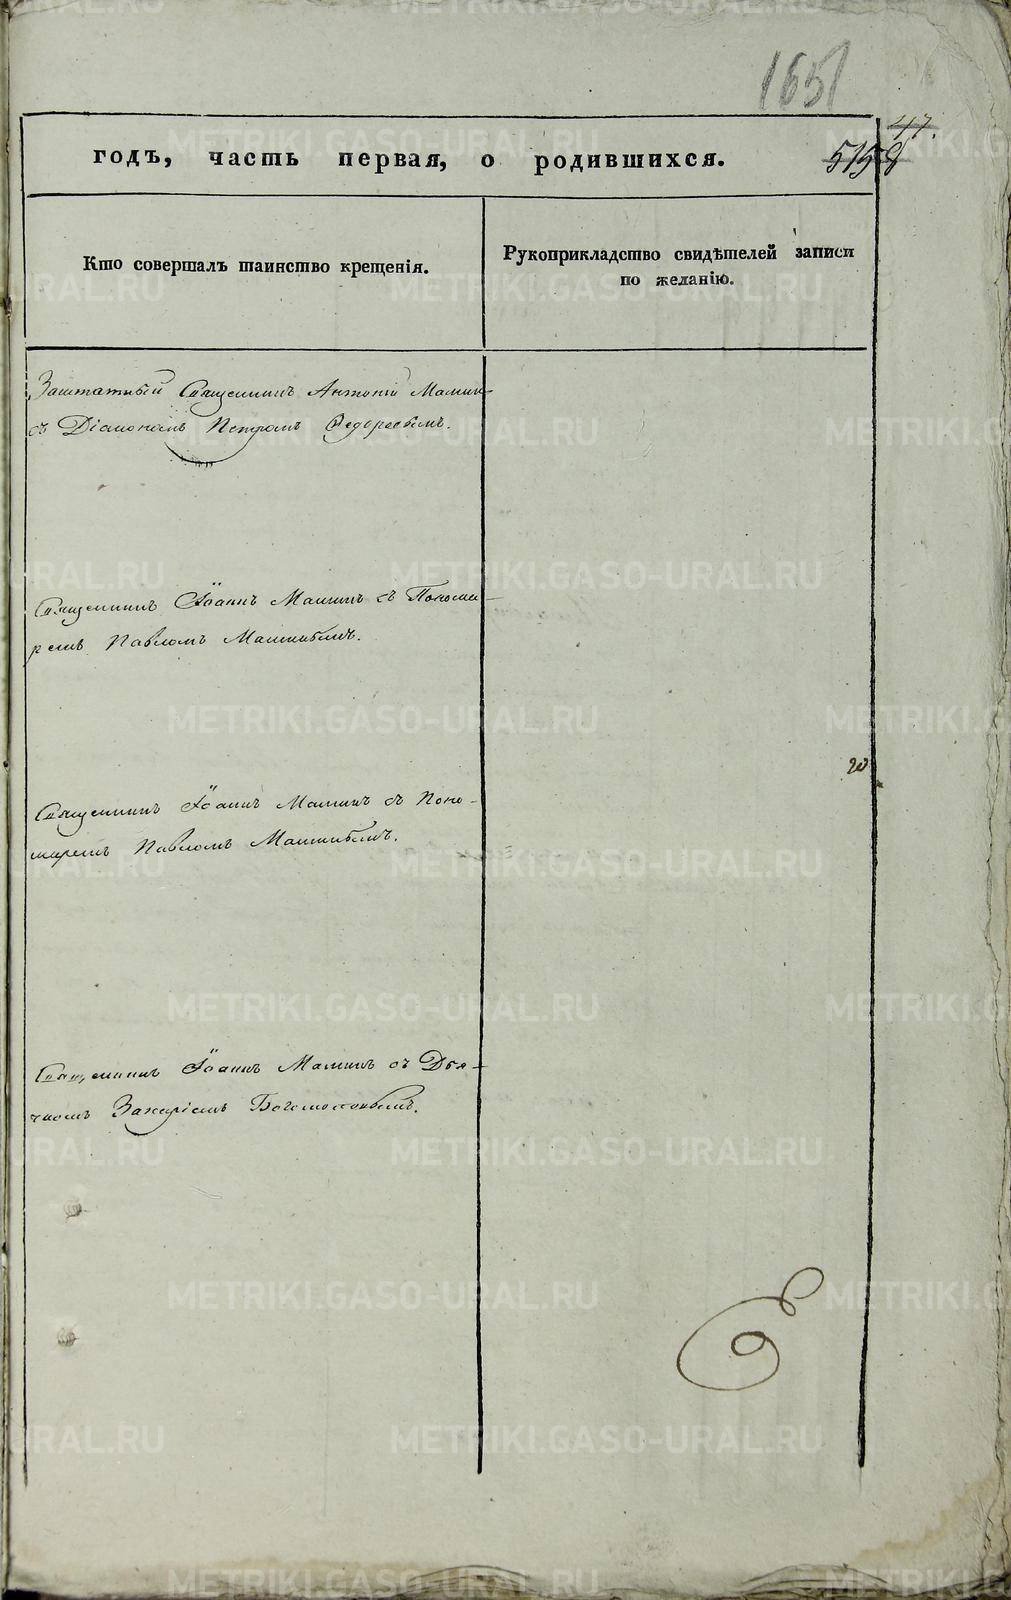 1651
47.
5198
годъ, часть первая, о родившихся.
Кто совершалъ таинство крещенія.
Рукоприкладство свидѣтелей записи
по желанію.
Заштатный Священникъ Антоній Маминъ
съ Діакономъ Петромъ Ѳедоровымъ.
Священникъ Іоаннъ Маминъ съ Понома-
ремъ Павломъ
Священникъ Іоаннъ Маминъ съ Поно-
маремъ Павломъ
Священникъ Іоаннъ Маминъ съ Дья-
чкомъ Захаріемъ Богомоловымъ.
METRIKI.GASO-URAL.RU